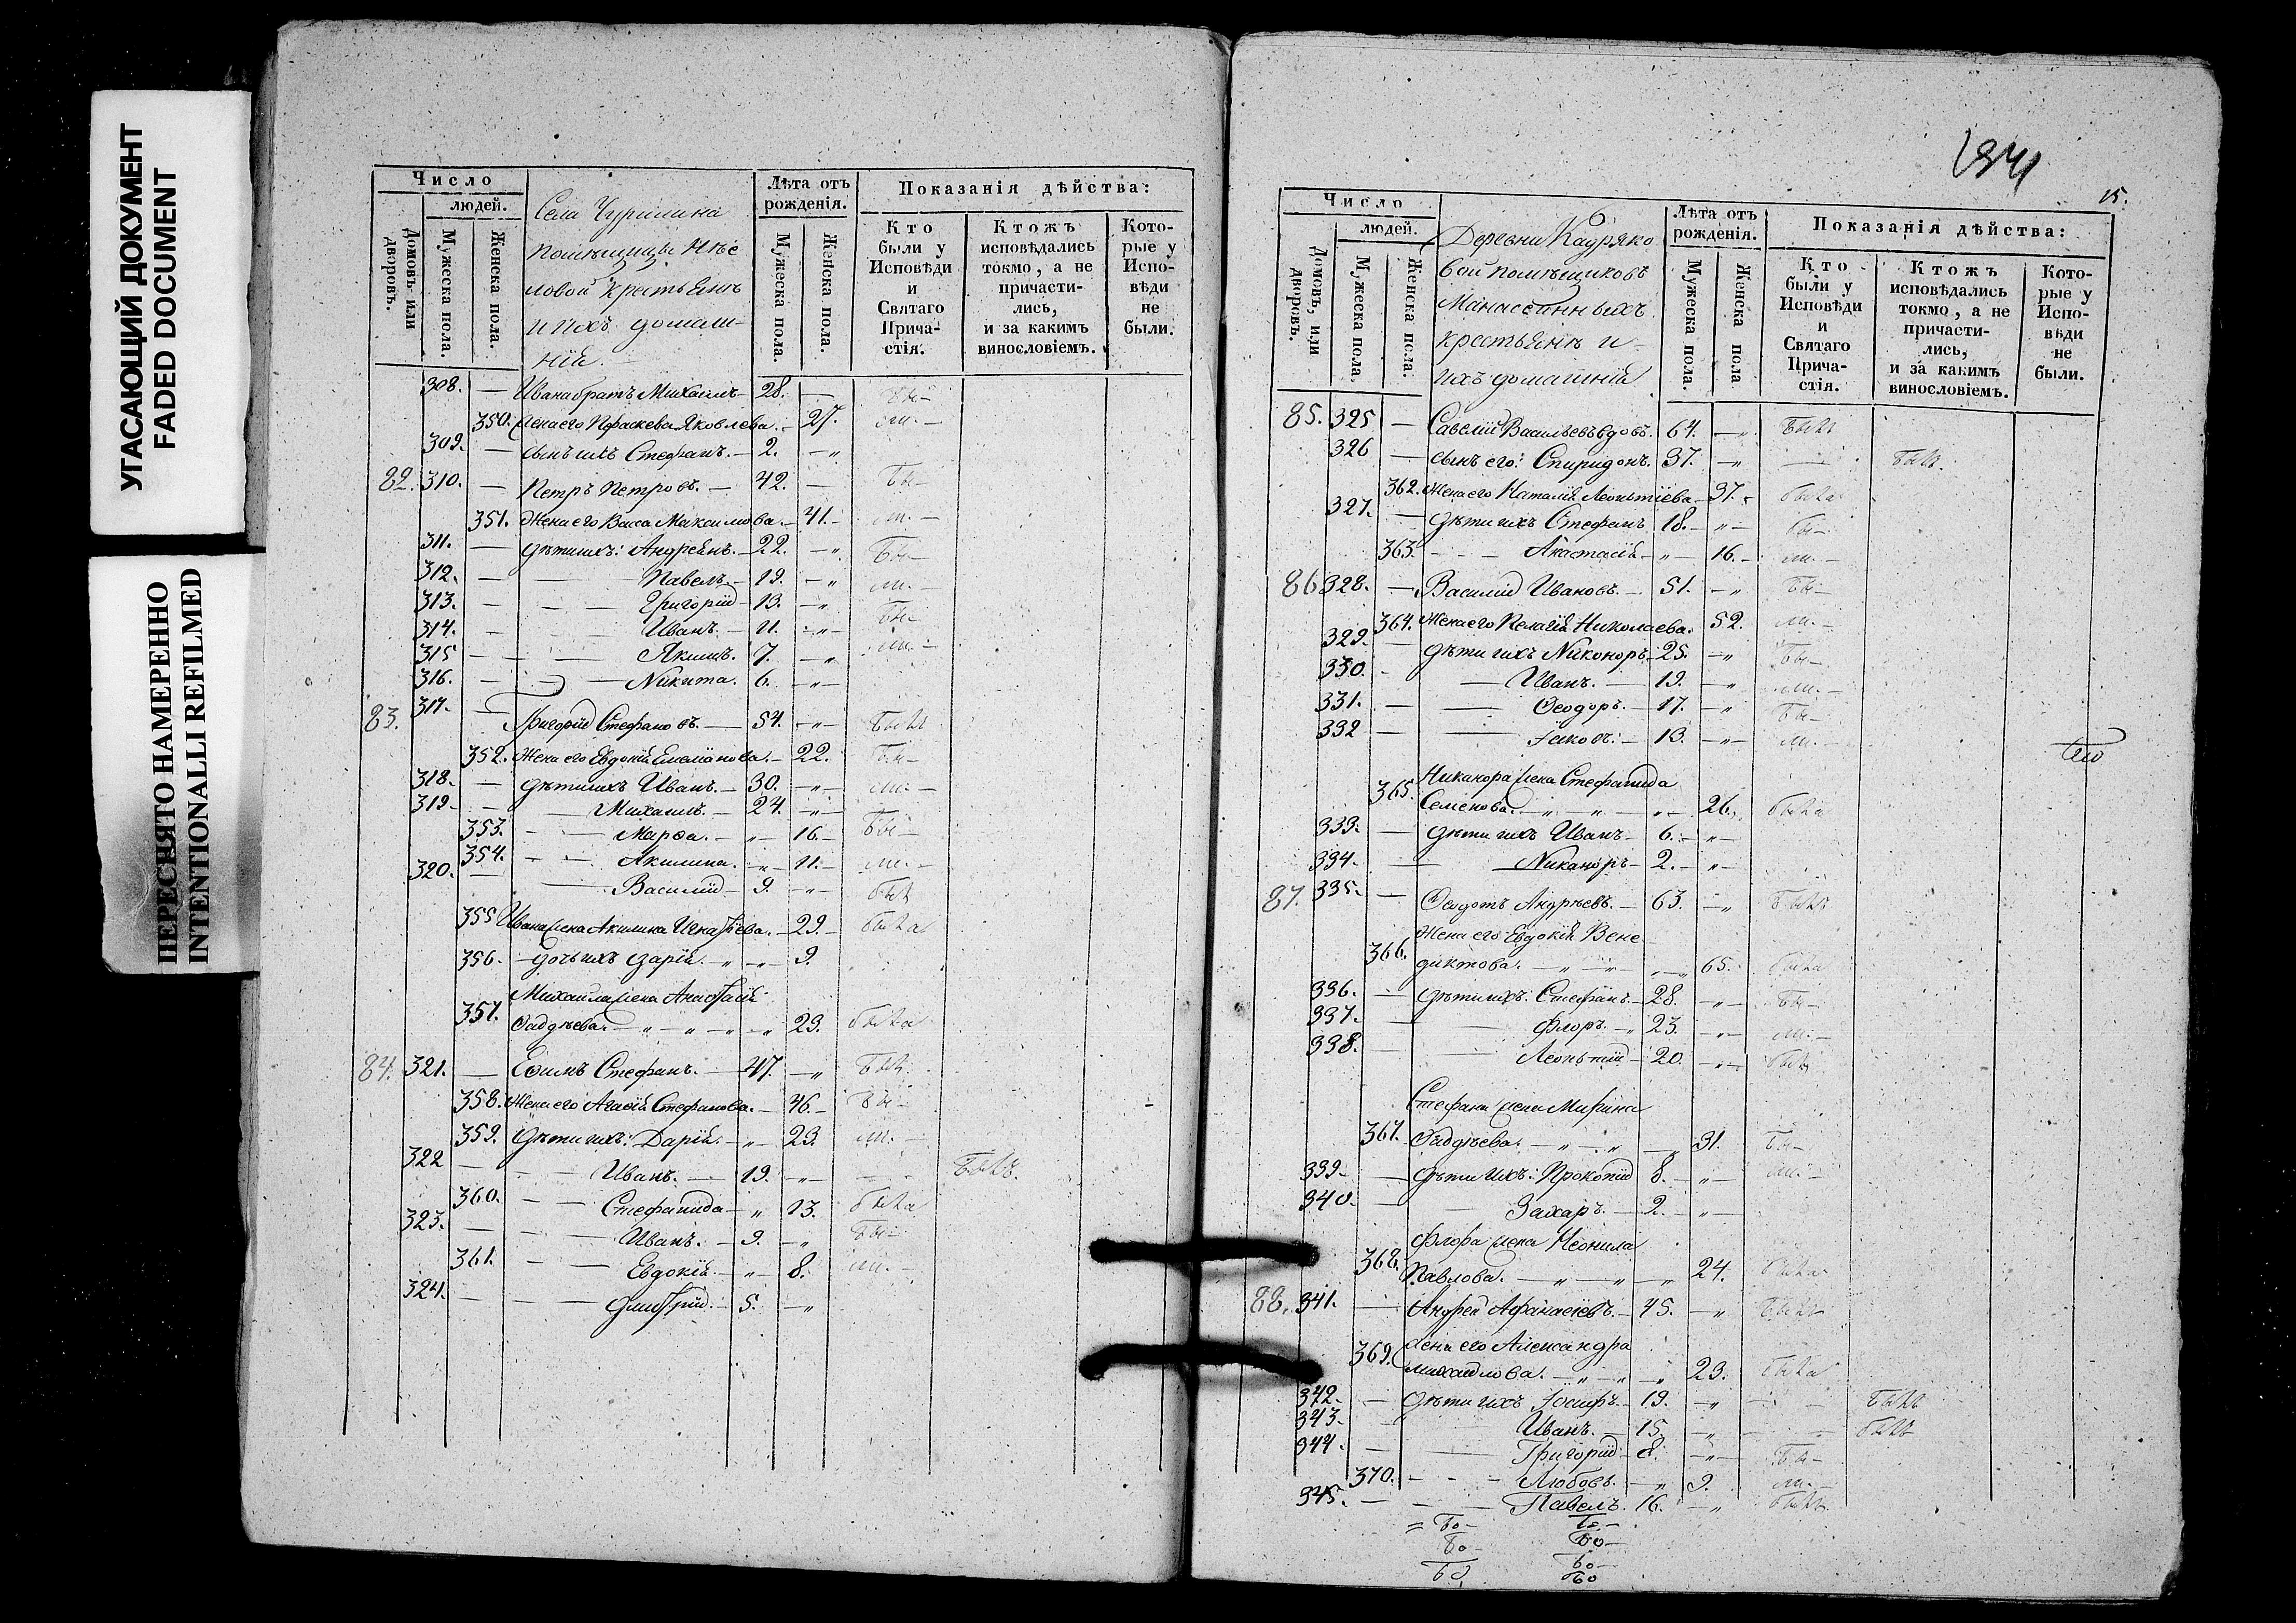 УГАСАЮЩИЙ ДОКУМЕНТ
FADED DOCUMENT
ПЕРЕСНЯТО НАМЕРЕННО
INTENTIONALLI REFILMED
Число
людей.
Домовъ или дворовъ.
Мужеска пола.
Женска пола.
Села Чурилина
помѣщицы
ловой крестьянъ
и ихъ домаш-
нія.
Лѣта отъ рожденія.
Мужеска пола.
Женска пола.
Показанія дѣйства:
Кто были у Исповѣди и Святаго Прича- стія.
Ктожъ исповѣдались токмо, а не причасти- лись, и за какимъ винословіемъ.
Кото- рые у Испо- вѣди не были.
308. — Ивана братъ Михаилъ — 28. — бы-
350. Жена его Параскева Яковлева. — 27. ли. —
309. — сынъ ихъ Стефанъ. — 2. — „
82. 310. — Петръ Петровъ. — 42. — Бы-
351. Жена его Васса Максимова. — 41. — ли. —
311. — дѣти ихъ: Андрей — 22. — „ Бы—
312. — — Павелъ. — 19. — „ ли. —
313. — — Григорій — 13. — „ бы-
314. — — Иванъ. — 11. — „ — ли. —
315 — — Якимъ. 7. — „
316. — — Никита. 6. — „ —
83. 317. — Григорій Стефановъ. — 54. — „ — Былъ
352. Жена его Евдокія Емеліанова. — 22. — Бы—
318. — дѣти ихъ Иванъ. — 30. — „ — ли. —
319. — — Михаилъ. — 24. — „ —
353. — — Марѳа. — „ — 16. — Бы—
354. — — Акилина. — „ — 11. — ли. —
320. — — Василій — 9. — „ — Былъ
355 Ивана жена Акилина Игнатіева. — 29. — Была
356. — дочь ихъ Дарія. — „ — „ — 9.
Михаила жена Анастасія
357. Ѳаддѣева. — „ — „ — „ 23. Была
84. 321. — Еѳимъ Стефанъ. — 47. — „ Былъ
358. Жена его Агаѳія Стефанова. — 46. — бы—
359. дѣти ихъ: Дарія. — „ — 23. ли. —
322 — — Иванъ. — 19. — „ — Былъ.
360. — — Стефанида — „ 13. Была
323. — — Иванъ. — 9. — „ Бы—
361. — — Евдокія — „ — 8. ли. —
324. — — Димитрій. — 5. — „
1841
15.
Число
людей.
Домовъ, или дворовъ.
Мужеска пола.
Женска пола.
Деревни Кадряко
вой помѣщиковъ
Манассеиныхъ
крестьянъ и
ихъ домашнія
Лѣта отъ рожденія.
Мужеска пола.
Женска пола
Показанія дѣйства:
Кто были у Исповѣди и Святаго Прича- стія.
Ктожъ исповѣдались токмо, а не причасти- лись, и за какимъ винословіемъ.
Кото- рые у Испо- вѣди не были.
85. 325 — Савелій Васильевъ вдовъ. 64. — „ Былъ
326 — сынъ его: Спиридонъ. 37. — „ — Былъ.
362. Жена его Наталія Леонтіева — 37. — Была
327. — дѣти ихъ Стефанъ 18. — „ — бы—
363. — — Анастасія — „ — 16. — ли. —
86 328. — Василій Ивановъ. — 51. — „ Бы—
364. Жена его Пелагія Николаева. 52. ли. —
329. — дѣти ихъ Никоноръ — 25. — „ Бы—
330. — — Иванъ. — 19. — „ ли. —
331. — — Ѳеодоръ. — 17. — „ Бы—
332 — — Іаковъ. — 13. — „ — ли. —
Никанора жена Стефанида
365. Семенова. — „ „ „ — 26. Была
333. — дѣти ихъ Иванъ — 6. — „ —
334. — — Никаноръ — 2. — „ —
87. 335. — Ѳедотъ Андрѣевъ. — 63. — „ Былъ
Жена его Евдокія Вене
366. диктова. — „ — „ — „ — „ 65. Была
336. — дѣти ихъ: Стефанъ. — 28. — „ — Бы—
337. — — Флоръ. — „ 23. — „ — ли. —
338. — — Леонтій — 20. — „ — Былъ
Стефана жена Марина
367. Ѳаддѣева. — „ — „ — „ 31. Бы—
339. — дѣти ихъ: Прокопій 8. — „ — ли. —
340. — — Захаръ. — 2. — „ —
Флора жена Неонила
368. Павлова. — „ — „ — „ 24. Была
88. 341. — Андрей Афанасіевъ. — 45. — „ Былъ
жена его Александра
369. Михайлова. — „ — „ — „ 23. Была
342. — дѣти ихъ Іосифъ. — 19. — „ — Былъ
343. — Иванъ. — 15. — „ — Былъ
344. — — Григорій — 8. — „ — Бы—
370. — — — Любовь. — „ 9. ли. —
345. — — Павелъ. 16. — „ Былъ